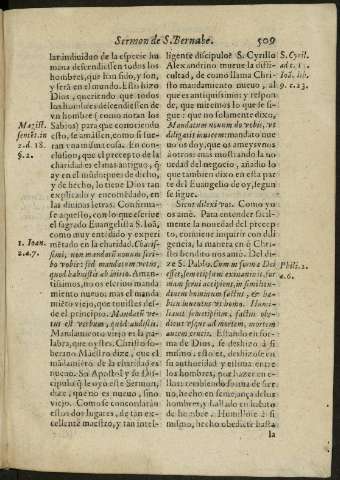 Sermon de S. Bernabe. 509
lar individuo de la especie hu
mana descendiessen todos los
hombres, que han sido, y son,
y serà en el mundo. Esto hizo
Dios, queriendo que todos
los hombres descendiessen de
vn hombre (como notan los
Sabios) para que conociendo
esto, se amassen, como si fues-
ran vna misma cosa. En con-
clusion, que el precepto de la
charidad es al mas antiguo, q̃
y en el mūdo; pues de dicho,
y de hecho, lo tiene Dios tan
explicado y encomēdado, en
las divinas letras. Confirma-
se aquesto, con lo que escrive
el sagrado Euangelista S. Ioã,
como muy entédido y exper
métado en la charidad. Charis-
simi, non mandatũ nouum scri-
bo vobis: sed mandatum vetus,
quod habuistis ab initio. Aman-
tissimos, no os escrivo manda
miento nuevo: mas el manda
miẽto viejo, que tuvistes des-
de el principio. Mandatũ ve-
tus est verbum, quod audistis.
Mandamiento viejo es la pa-
labra, que oystes. Christo so-
berano Maestro dize, que el
mãdamiẽto de la charidad es
nuevo. Su Apostol y su Dis-
cipulo q̃ le oyò este Sermon,
dize, que no es nuevo, sino
viejo. Como se concordaràn
estos dos lugares, de tan ex-
cellente maestro, y tan intel-
Magist.
sentēt. in
2. d. 18.
§. 2.
1. Ioan.
2. a. 7.
ligente discipulo? S. Cyrillo
Alexandrino mueve la diffi-
cultad, de como llama Chri-
sto mandamiento nuevo, al
que es antiquissimo? y respon-
de, que miremos lo que se si-
gue: que no solamente dixo,
Mandatum nouum do vobis, vt
diligatis inuicem: mandato nue
vo os doy, que os ameys vnos
à otros: mas mostrando la no
vedad del negocio, añadiò lo
que tambien dixo en esta par
te del Euangelio de oy, segun
se sigue.
Sicut dilexi vos. Como yo
os amè. Para entender facil-
mente la novedad del precep-
to, conviene inquirir con dili
gencia, la manera en q̃ Chri-
sto bendito nos amò. Del di-
ze S. Pablo. Cum in forma Dei
esset, semetipsum exinaniuit, for
mam serui accipiens, in similitu-
dinem hominum factus, et ha-
bitu inuentus vt homo. Humi-
liauit semetipsum, factus obe-
diens vsque ad mortem, mortem
autem crucis. Estando en for-
ma de Dios, se deshizo à si
mismo; esto es, deshizose en
su authoridad y estima entre
los hombres, por hazer en e-
llas: recibiendo forma de sier
vo, hecho en semejança de los
hombres, y hallado en habito
de hombre. Humillòse à si
mismo, hecho obediẽte hasta
la
S. Cyril.
Ioã. lib.
9. c. 23.
Phili. 2.
a. 6.